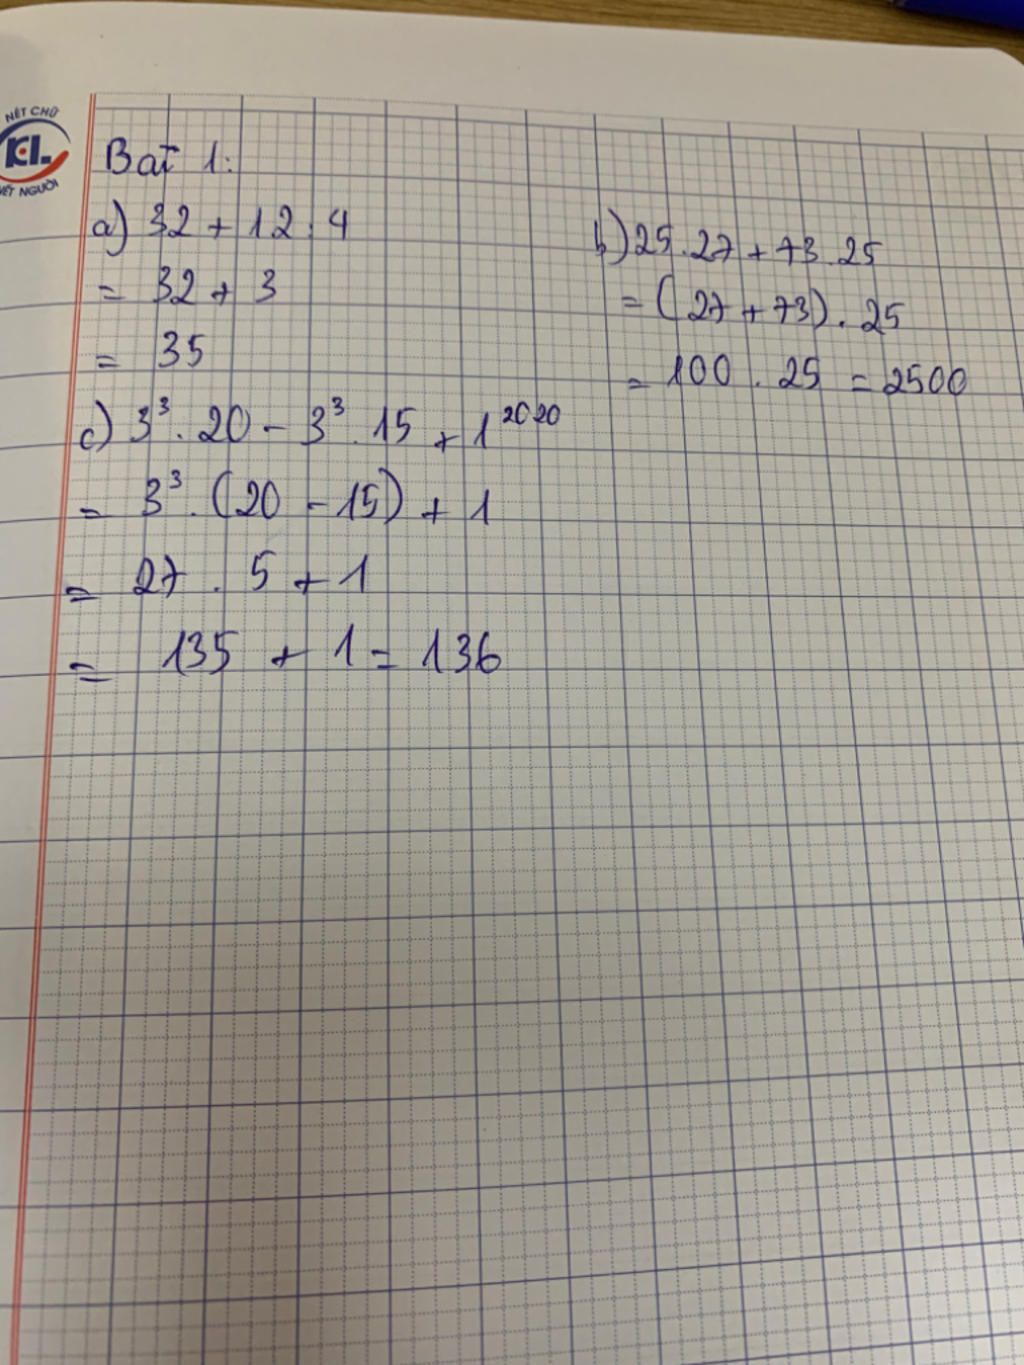 NÉT CHỮ
KL
NẾT NGƯỜI
Bài 1:
a) 32 + 12 : 4
= 32 + 3
= 35
b) 25 . 27 + 73 . 25
= (27 + 73) . 25
= 100 . 25 = 2500
c) 3³ . 20 - 3³ . 15 + 1²⁰²⁰
= 3³ . (20 - 15) + 1
= 27 . 5 + 1
= 135 + 1 = 136